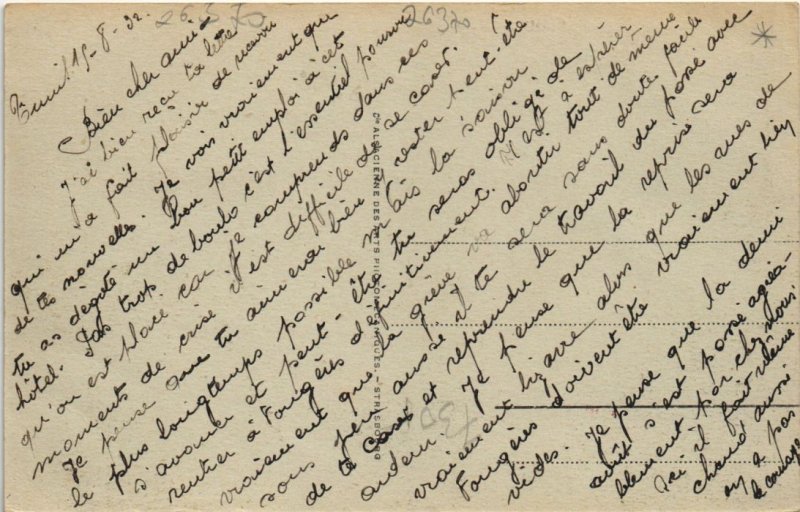 26370
26370
Tunis. 15-8-32
Bien cher ami
J'ai bien reçu ta lettre
qui m'a fait plaisir de recevoir
de tes nouvelles. Je vois vraiement que
tu as dégoté un bon petit emploi à cet
hôtel. Pas trop de boulo c'est l'essentiel pourvu
qu'on est place car je comprends dans ces
moments de crise il est difficile de se caser.
Je pense que tu aimerai bien y rester peut-être
le plus longtemps possible mais la saison
s'avance et peut-être tu seras obligé de
rentrer à Fougères définitivement. N'est à espérer
vraiement que la grève va aboutir tout de même
sous peu aussi il te sera sans doute facile
de te caser et reprendre le travail du posé avec
ardeur. Je pense que la reprise sera
vraiement bizarre alors que les rues de
Fougères doivent être vraiement bien
vides. Je pense que la demi
août s'est passé agréa-
blement par chez nous.
Ici il fait même
chaud aussi
on y a pas
le courage
Cie ALSACIENNE DES ARTS PHOTOMÉCANIQUES. — STRASBOURG